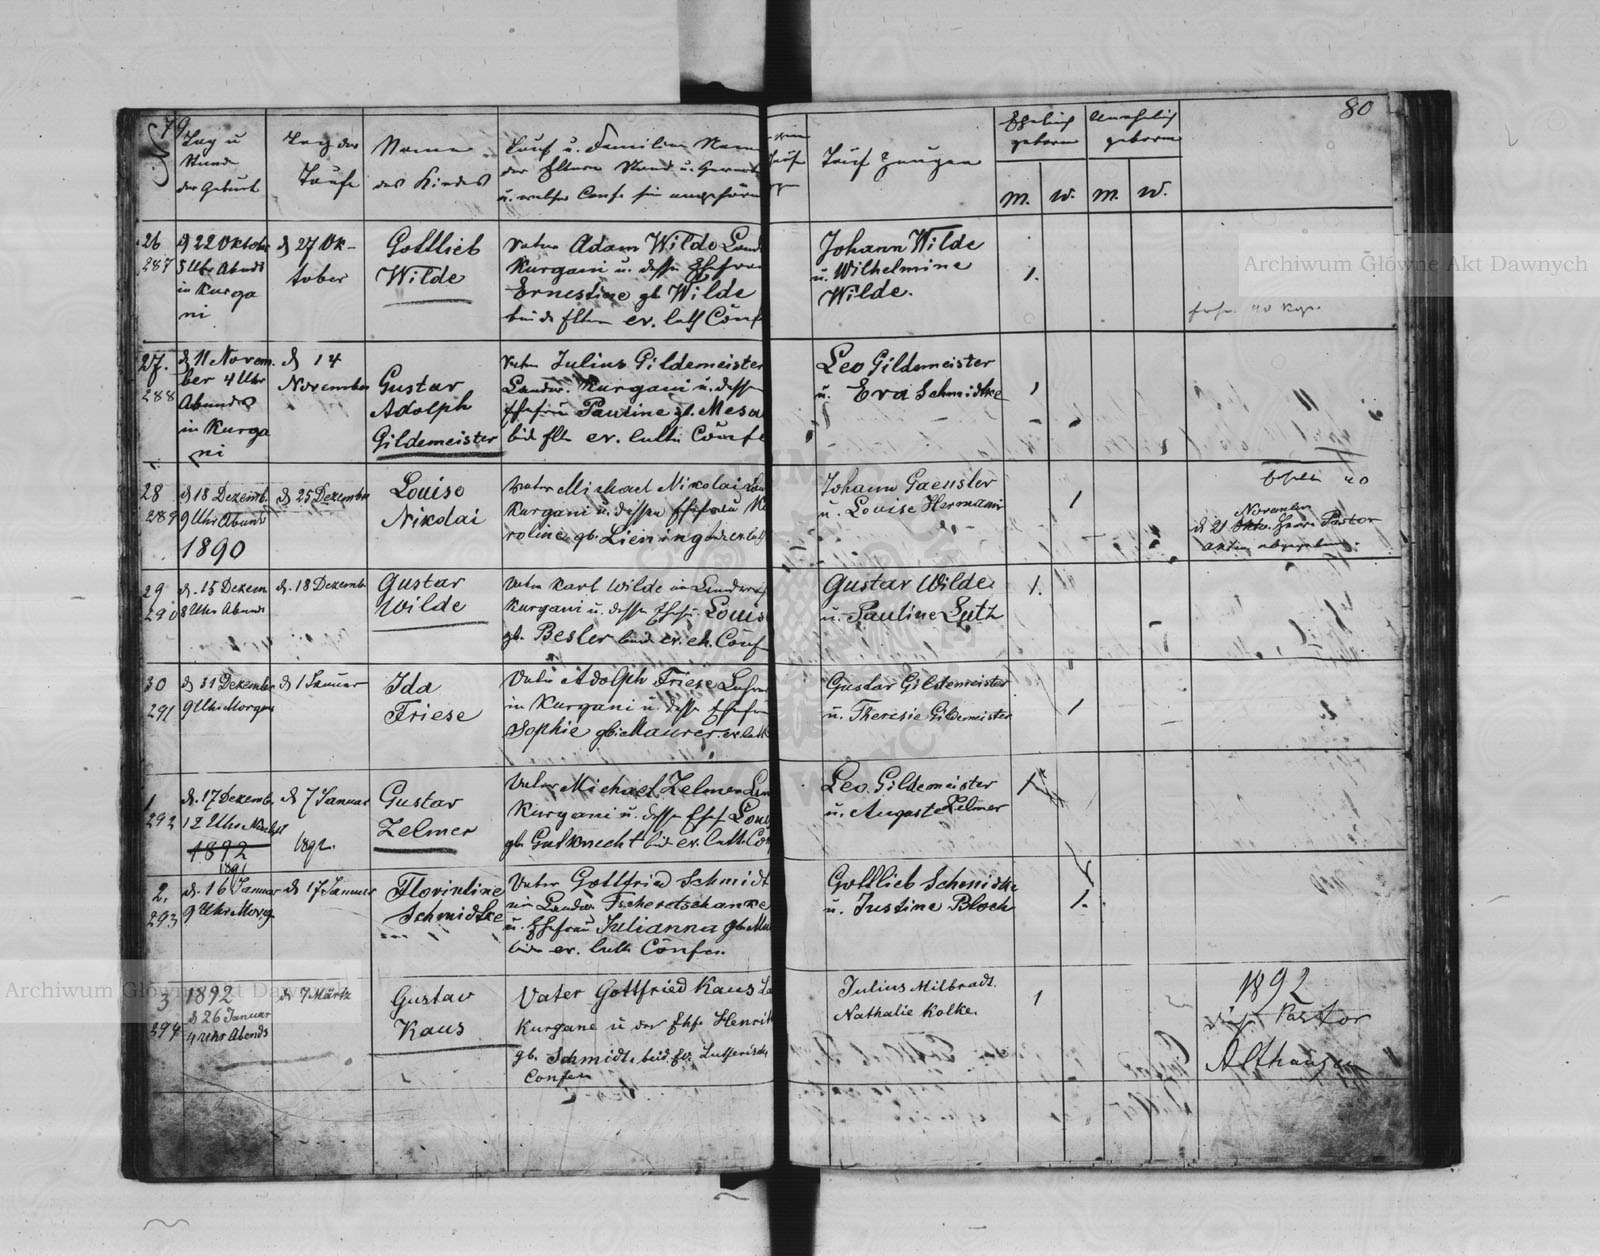 79
Tag u
Stunde
der Geburt
Tag der
Taufe
Name
des Kindes
Tauf u. Familien Nam
der Eltern Stand u.
u. welcher Conf. sie angehören
Tauf Zeugen
Ehelich
geboren
Unehelich
geboren
M.
W.
M.
W.
80
26
287
d 22 Oktober
5 Uhr Abends
in Kurga
ni
d 27 Ok-
tober
Gottlieb
Wilde
Vater Adam Wilde Land
Kurgani u. dessen Ehefrau
Ernestine gb Wilde
beide Eltern ev. luth Conf
Johann Wilde
u. Wilhelmine
Wilde.
1.
27.
288
d 11 Novem
ber 4 Uhr
Abends
in Kurga
ni
d 14
November
Gustav
Adolph
Gildemeister
Vater Julius Gildemeister
Landw. Kurgani u. dessen
Ehefrau Pauline gb. Mesa
beid Elt ev. luth Conf
Leo Gildemeister
u. Eva Schmidtke
1
28
289
d 18 Dezemb.
9 Uhr Abends
1890
d 25 Dezember
Louise
Nikolai
Vater Michael Nikolai Lan
Kurgani u. dessen Ehefrau Ka
roline gb. Liening beid ev luth
Johann Gaensler
u. Louise Hermann
1
20
November
d 21 Herr Pastor
abgegeben.
29
290
d. 15 Dezem
8 Uhr Abends
d. 18 Dezemb
Gustav
Wilde
Vater Karl Wilde ein Landw
Kurgani u. dessen Ehefr. Louis
gb. Besler beid ev. Conf
Gustav Wilde
u. Pauline Lutz
1.
30
291
d 31 Dezember
9 Uhr Morgens
d 1 Januar
Ida
Friese
Vater Adolph Friese Lehrer
in Kurgani u. dessen Ehefrau
Sophie gb. Maurer. ev. luth
Gustav Gildemeister
u. Theresie Gildemeister
1
1
292
d. 17 Dezemb.
12 Uhr Nachts
1892
1891
d 7 Januar
1892.
Gustav
Zelmer
Vater Michael Zelmer Lan
Kurgani u. dessen Ehef Loui
gb. Gutknecht beid ev. luth. Co
Leo Gildemeister
u. Auguste Zelmer
1
2.
293
d. 16 Januar
9 Uhr Morg
d 17 Januar
Florintine
Schmidtke
Vater Gottfried Schmidt
ein Landw. Tscheretschanke
u. Ehefrau Julianna gb Mu
beide ev. luth Confes.
Gottlieb Schmidtke
u. Justine Bloch
1.
3
294
1892
d 26 Januar
4 Uhr Abends
d 7 Märtz
Gustav
Kaus
Vater Gottfried Kaus La
Kurgane u der Ehfr Henrit
gb. Schmidt beid Ev. Lutherische
Confes
Julius Milbradt.
Nathalie Kolke.
1
1892
Pastor
Althausen
Archiwum Główne Akt Dawnych
Archiwum Główne Akt Dawnych